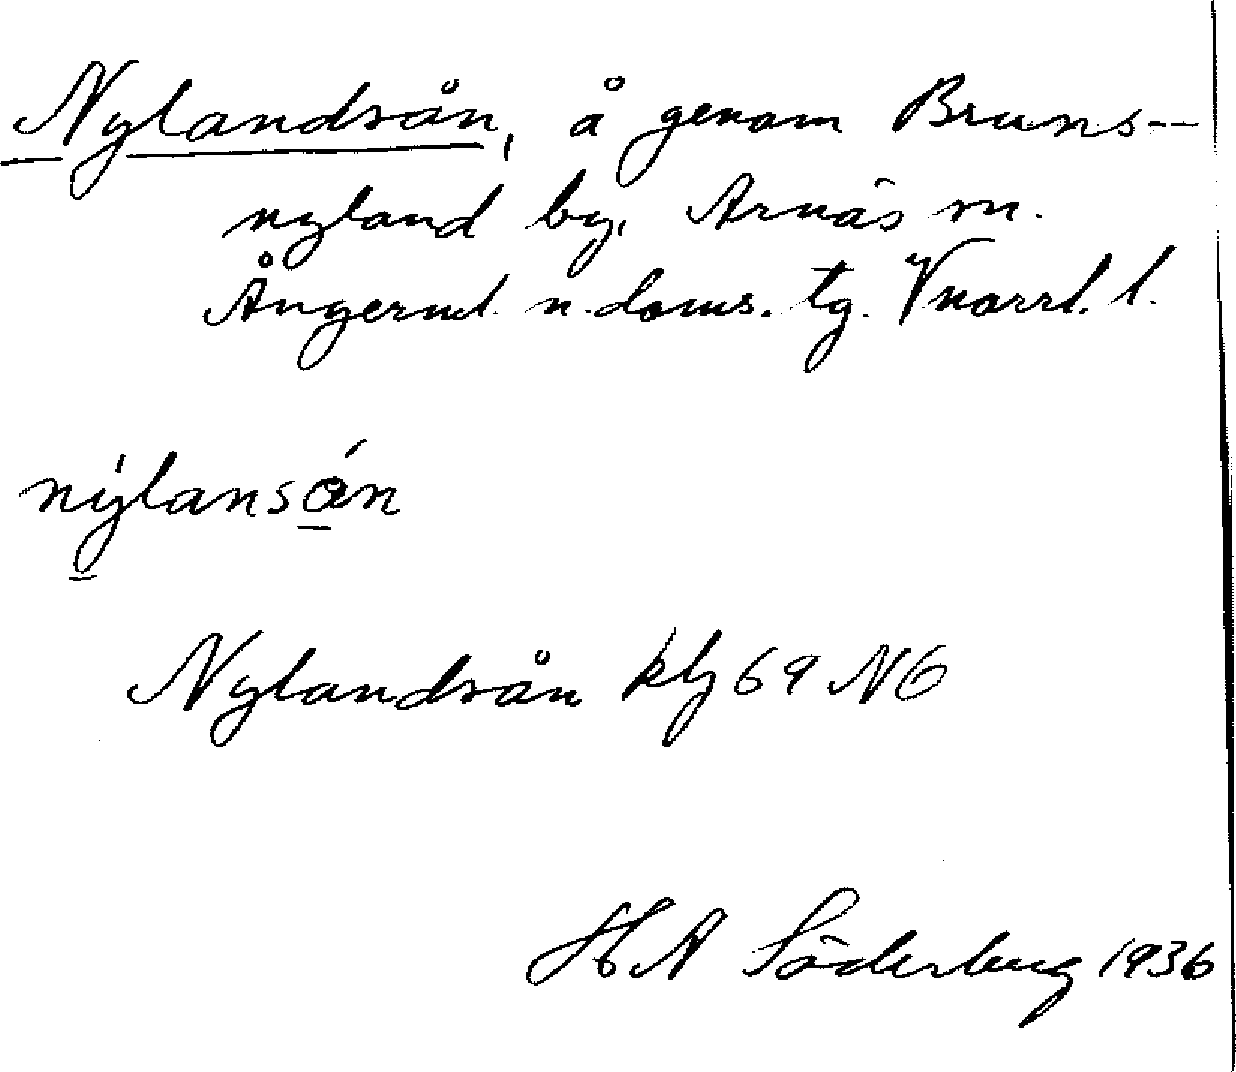 Nylandsån, å genom Bruns-
nyland by, Arnäs sn.
Ångerml. n. doms. tg. Vnorrl. l.
nýlansǻn
Nylandsån kbg 69 NO
H A Söderberg 1936